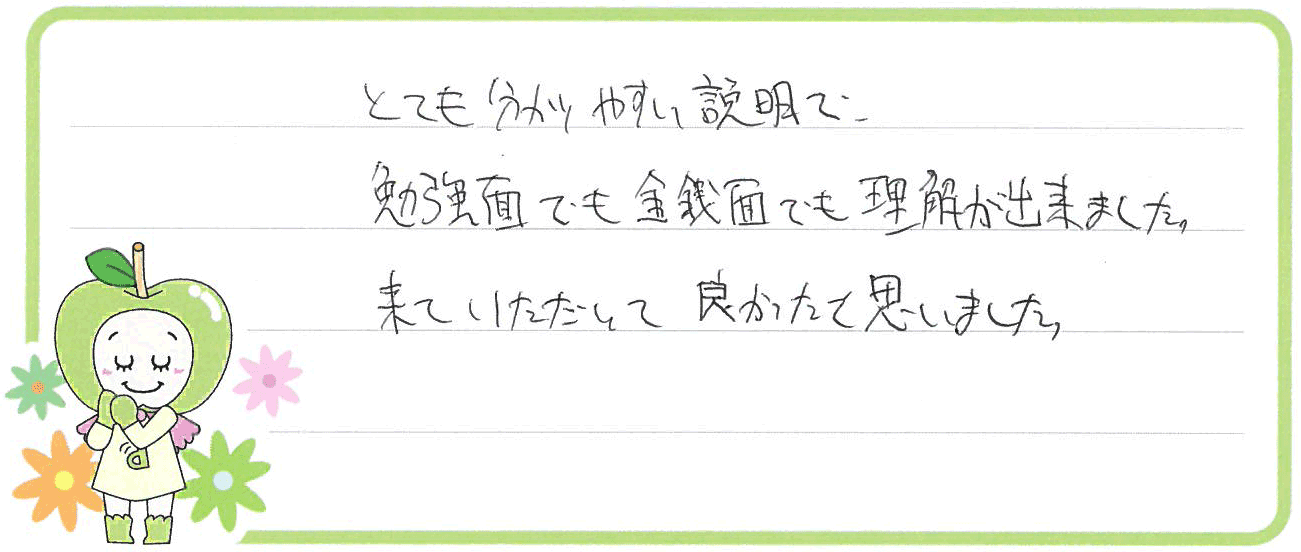 とても分かりやすい説明で
勉強面でも金銭面でも理解が出来ました。
来ていただいて良かったと思いました。